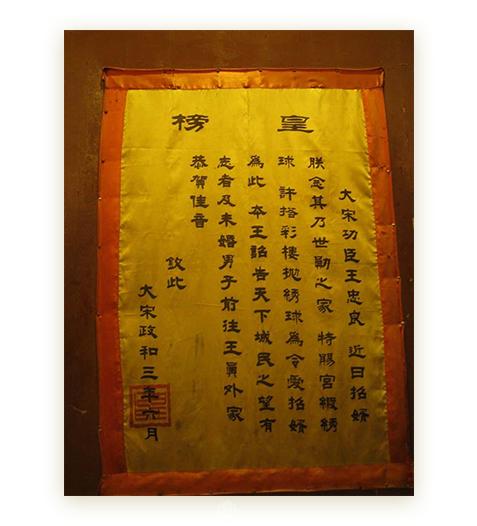 皇榜
大宋功臣王忠良 近日招婿
朕念其乃世勋之家 特赐宫缎绣
球 許搭彩樓抛綉球為令愛招婿
為此 本王詔告天下城民之望有
志者及未婚男子前往王員外家
恭賀佳音
钦此
大宋政和三年六月